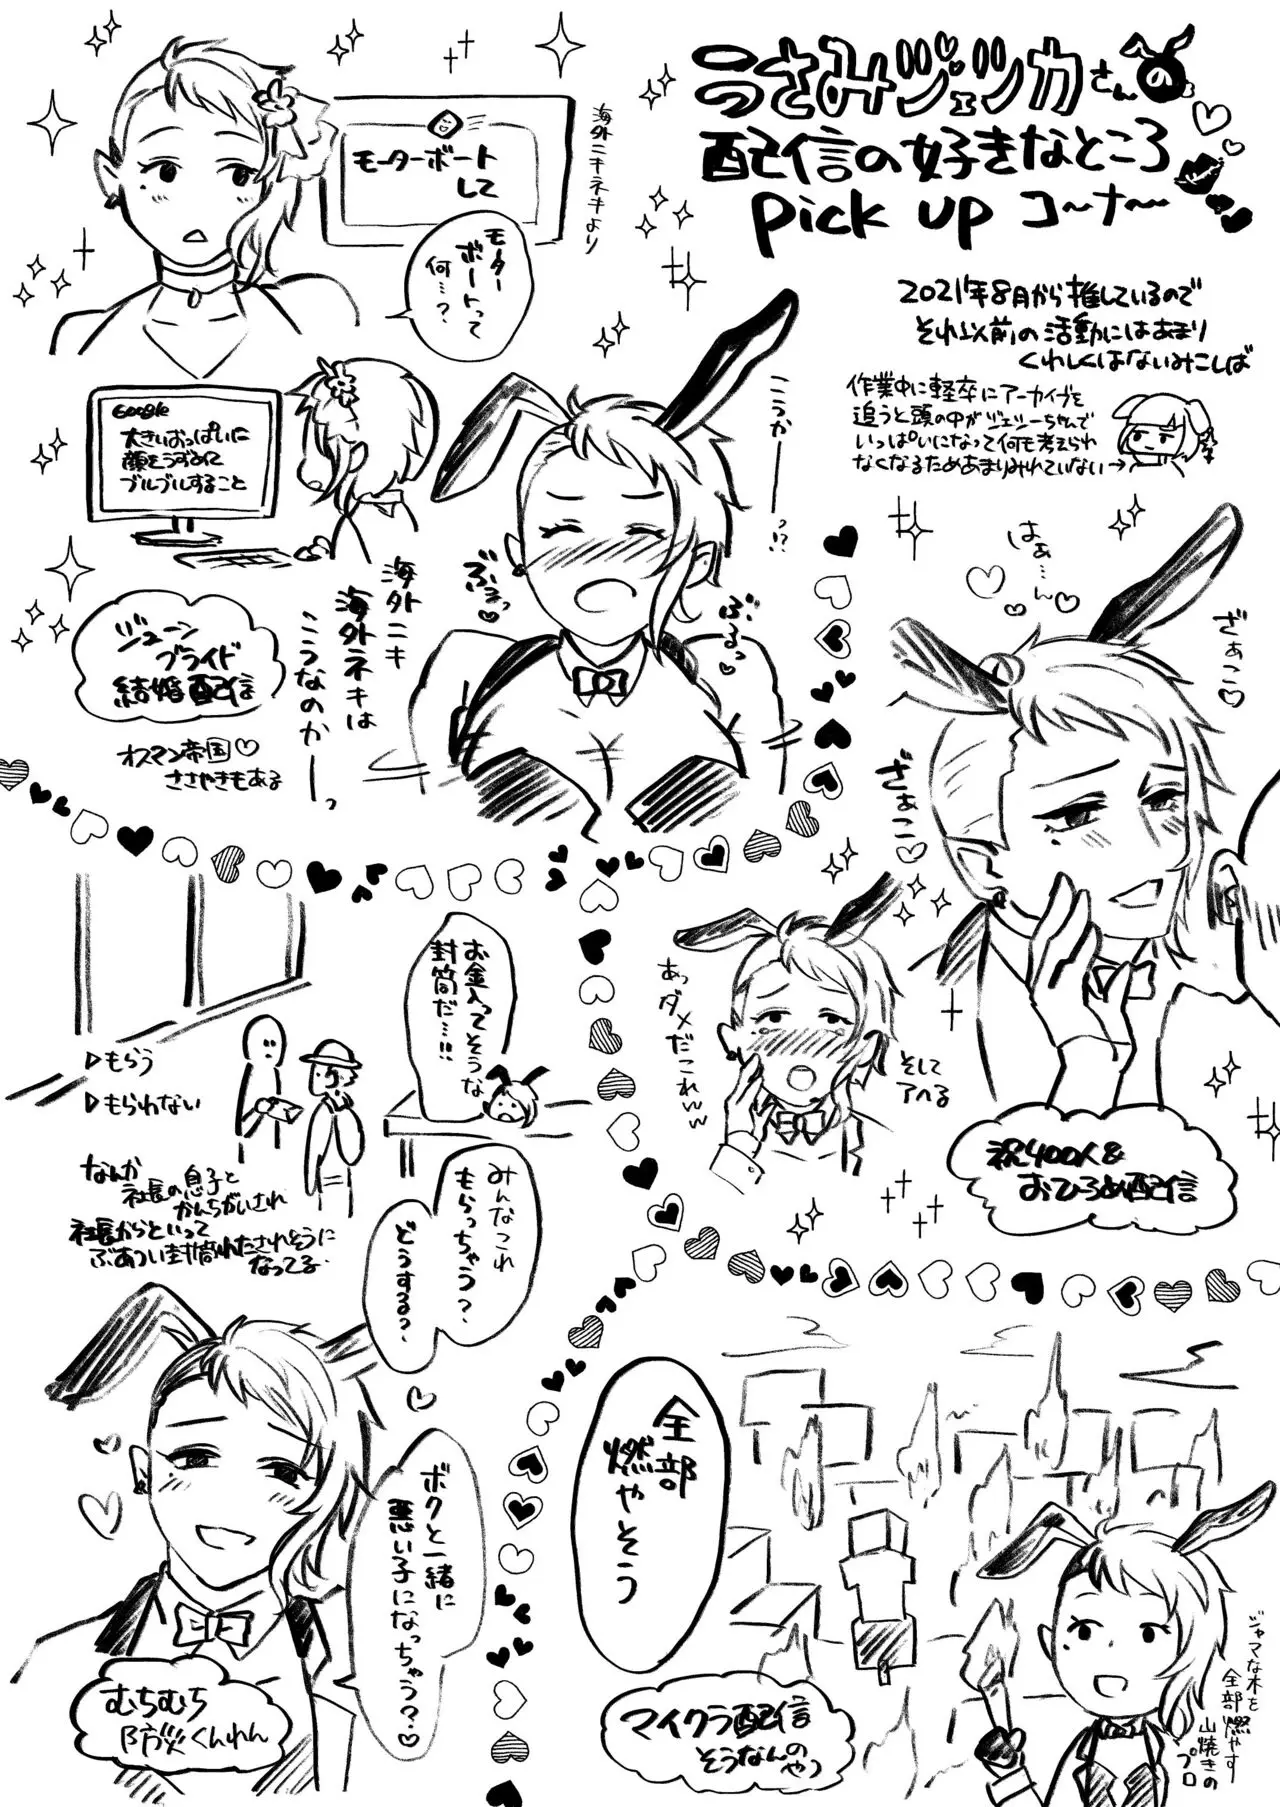 うさみジェッカさんの
配信の好きなところ
pick up コ〜ナ〜
2021年8月から推しているので
それ以前の活動にはあまり
くわしくはないみこしば
作業中に軽卒にアーカイブを
追うと頭の中がジェシーちゃんで
いっぱいになって何も考えられ
なくなるためあまりみれていない→
海外ニキネキより
モーターボート
して
モーター
ボートって
何…?
Google
大きいおっぱいに
顔をうずめて
ブルブルすること
こうかーーー!?
ぶるっ
海外ニキ
海外ネキは
こうなのかーーっ
ジューン
ブライド
結婚配信
オスマン帝国♡
ささやきもある
はぁ…ん
ざぁこ♡
ざぁこ♡
あっダメだこれww
そして
アヘる
祝400人&
おひろめ配信
お金入ってそうな
封筒だ…!!
▷もらう
▷もらわない
なんか
社長の息子と
かんちがいされ
社長からといって
ぶあつい封筒わたされそうに
なってる
みんなこれ
もらっちゃう?
どうする?
ボクと一緒に
悪い子になっちゃう?♡
むちむち
防災くんれん
全部
燃やそう
マイクラ配信
そうなんのやつ
ジャマな木を
全部燃やす
山焼きの
プロ